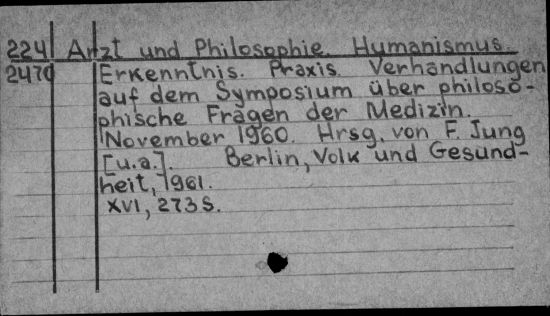 224 Arzt und Philosophie. Humanismus
2470 Erkenntnis. Praxis. Verhandlungen
auf dem Symposium über philoso-
phische Fragen der Medizin.
November 1960. Hrsg. von F. Jung
[u.a.]. Berlin, Volk und Gesund-
heit, 1961.
XVI, 273 S.